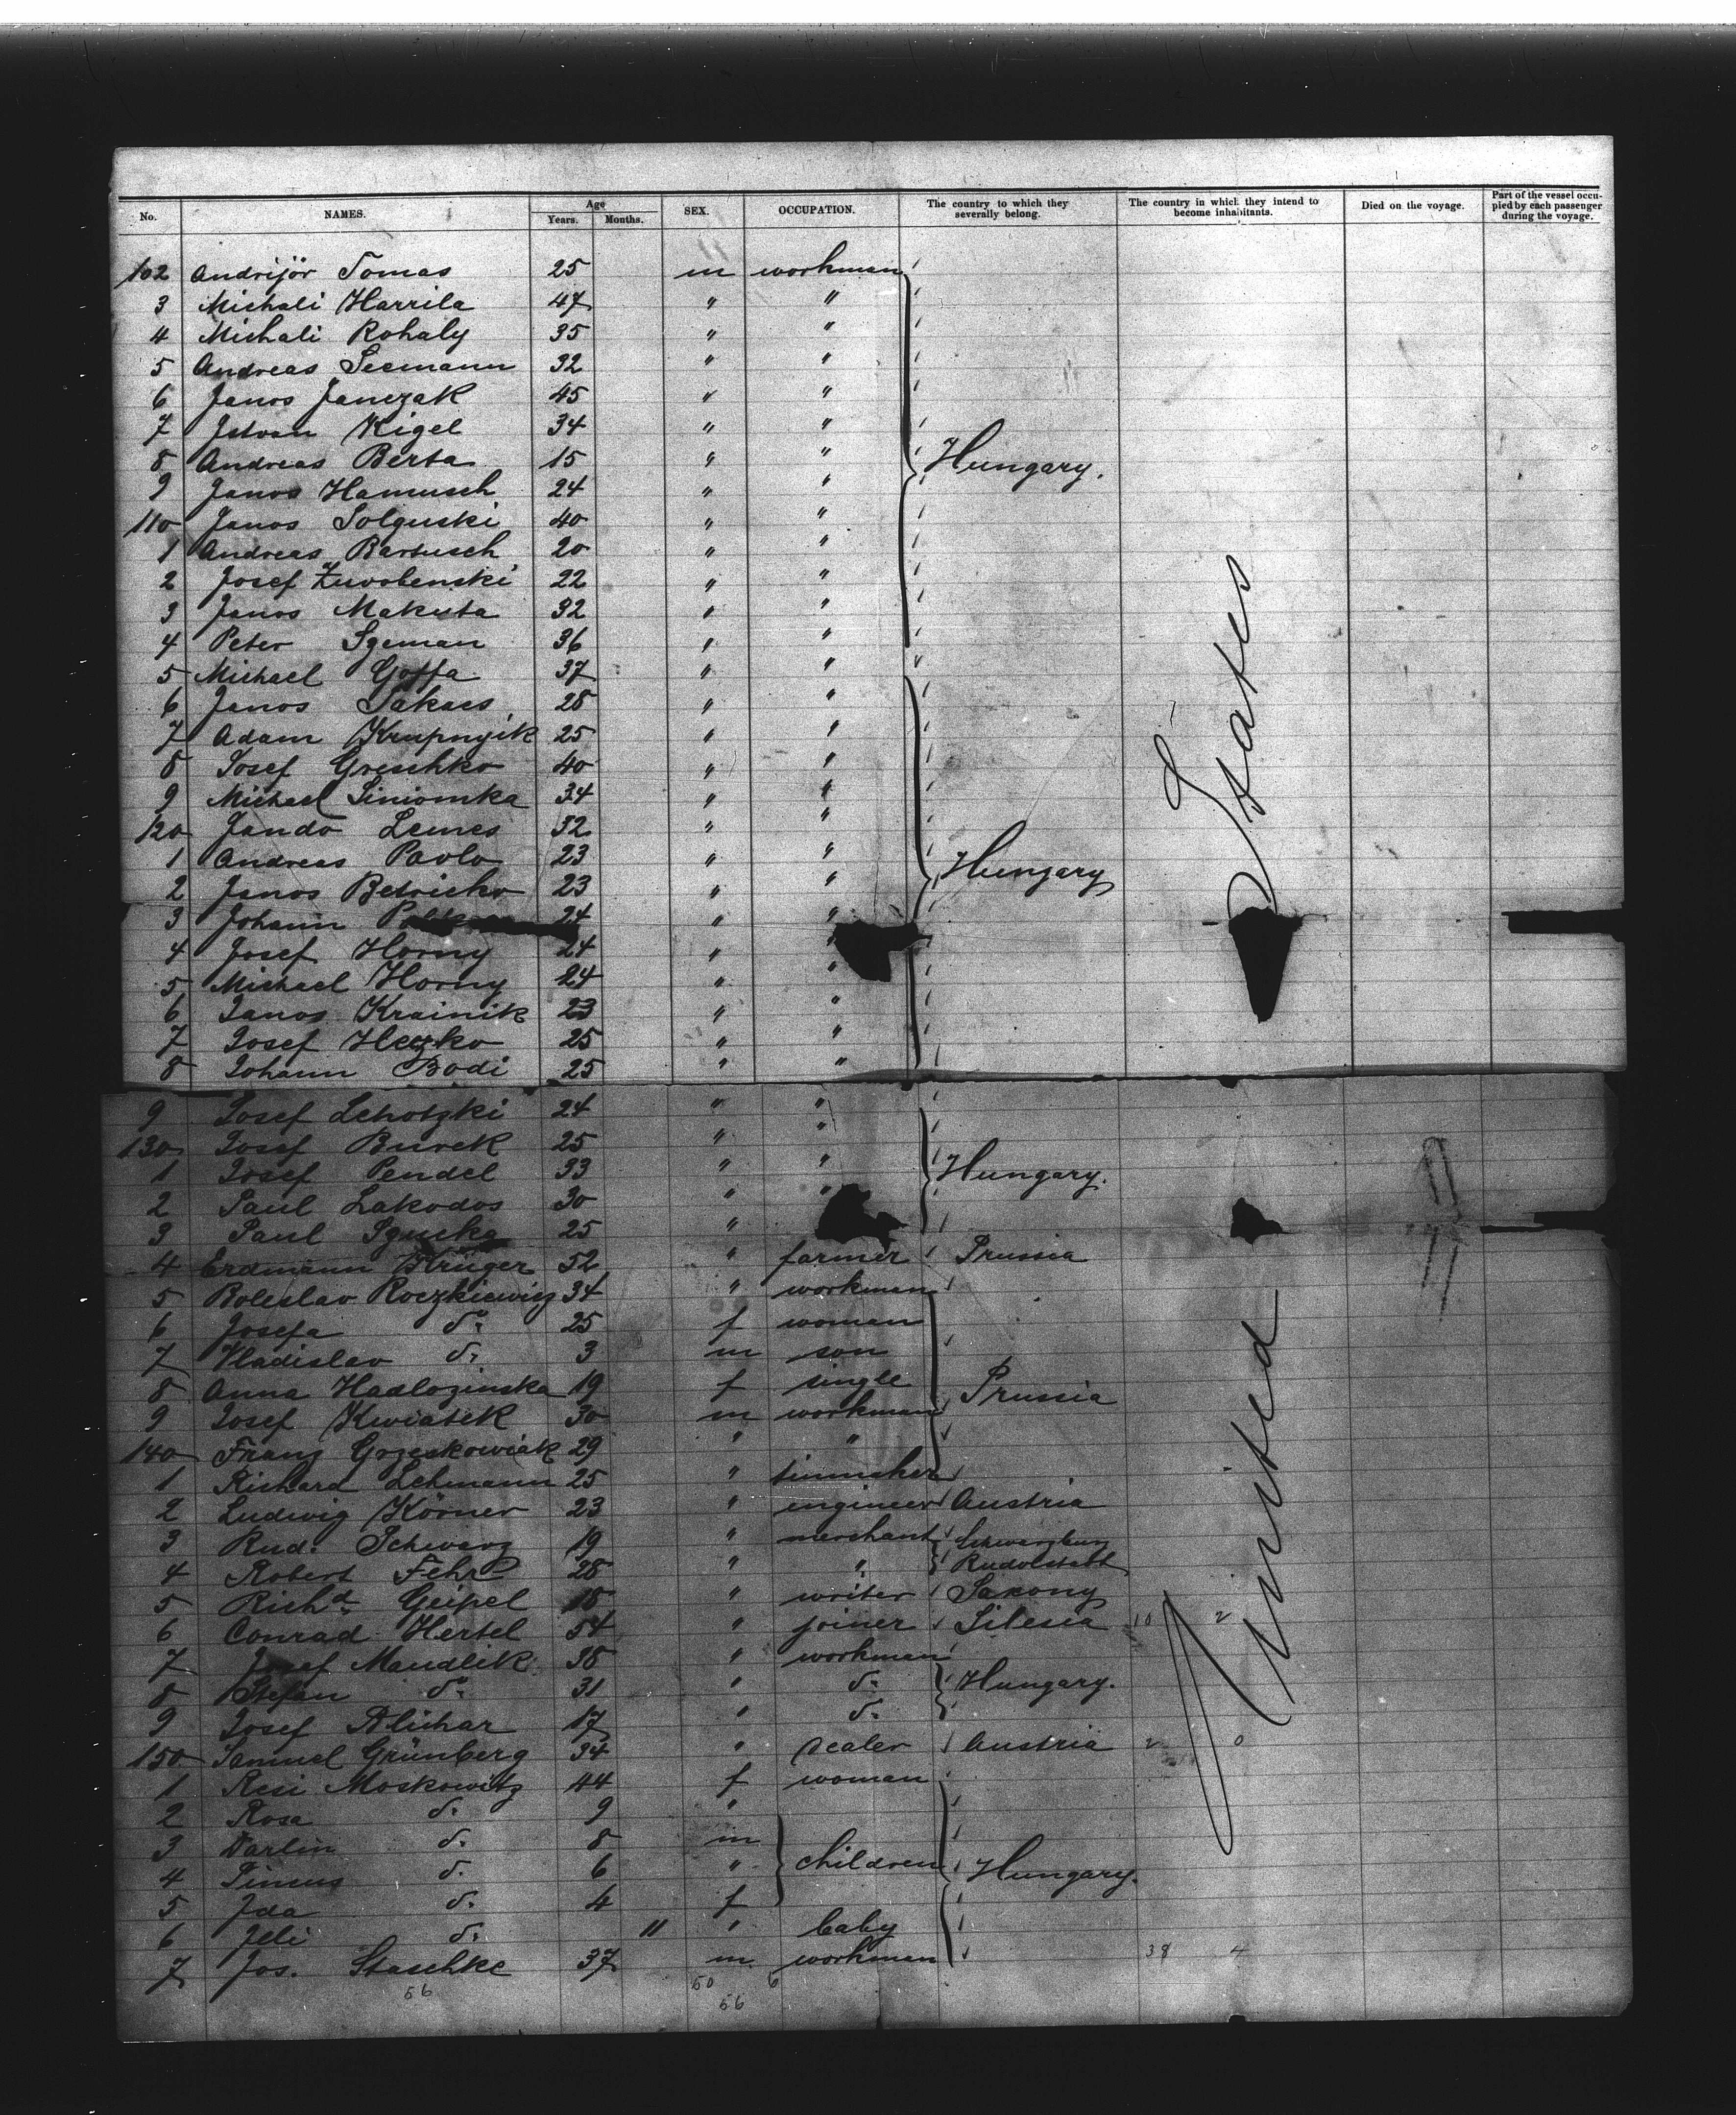 No. NAMES. Age Years. Months. SEX. OCCUPATION. The country to which they severally belong. The country in which they intend to become inhabitants. Died on the voyage. Part of the vessel occupied by each passenger during the voyage.
102 Andrijór Tomas 25 m workman
3 Michali Harrila 47 " "
4 Michali Rohaly 35 " "
5 Andreas Seemann 32 " "
6 Janos Janczak 45 " "
7 Istvan Kigel 34 " "
8 Andreas Berta 15 " " Hungary.
9 Janos Hamusch 24 " "
110 Janos Solguski 40 " "
1 Andreas Bartusch 20 " "
2 Josef Zuvobenski 22 " "
3 Janos Makuta 32 " "
4 Peter Szeman 36 " "
5 Michael Goffa 37 " "
6 Janos Takacs 28 " "
7 Adam Krupnyik 25 " "
8 Josef Greschko 40 " "
9 Michael Siniomka 34 " "
120 Jando Lemes 32 " "
1 Andreas Pavlo 23 " " Hungary
2 Janos Betricko 23 " "
3 Johann 24 " "
4 Josef Horny 24 " "
5 Michael Horny 24 " "
6 Janos Krainik 23 " "
7 Josef Hezko 25 " "
8 Johann Bodi 25 " "
9 Josef Lehotzki 24 " "
130 Josef Burek 25 " "
1 Josef Pendel 33 " " Hungary.
2 Paul Lakodos 30 " "
3 Paul 25 "
4 Erdmann Krüger 52 " farmer Prussia
5 Boleslav Roczkiewicz 34 " workman
6 Josefa do. 25 f woman
7 Vladislav do. 3 m son
8 Anna Hadlozinska 19 f single Prussia
9 Josef Kwiatek 30 m workman
140 Franz Grzeskowiak 29 " "
1 Richard Lehmann 25 " tinmaker
2 Ludwig Körner 23 " engineer Austria
3 Rud. Schwarz 19 " merchant Schwarzburg
4 Robert Fehr 28 " " Rudolstadt
5 Richd. Geipel 18 " writer Saxony
6 Conrad Hertel 54 " joiner Silesia 10 2
7 Josef Mandlik 38 " workman
8 Stefan do. 31 " do. Hungary.
9 Josef Alichar 17 " do.
150 Samuel Grünberg 34 " dealer Austria 2 0
1 Resi Moskowitz 44 f woman
2 Rosa do. 9 "
3 Warlin do. 8 m
4 Pincus do. 6 " children Hungary.
5 Ida do. 4 f
6 Jeli do. 11 " baby
7 Jos. Staschke 37 m workman 38 4
56 50 6
56
United States